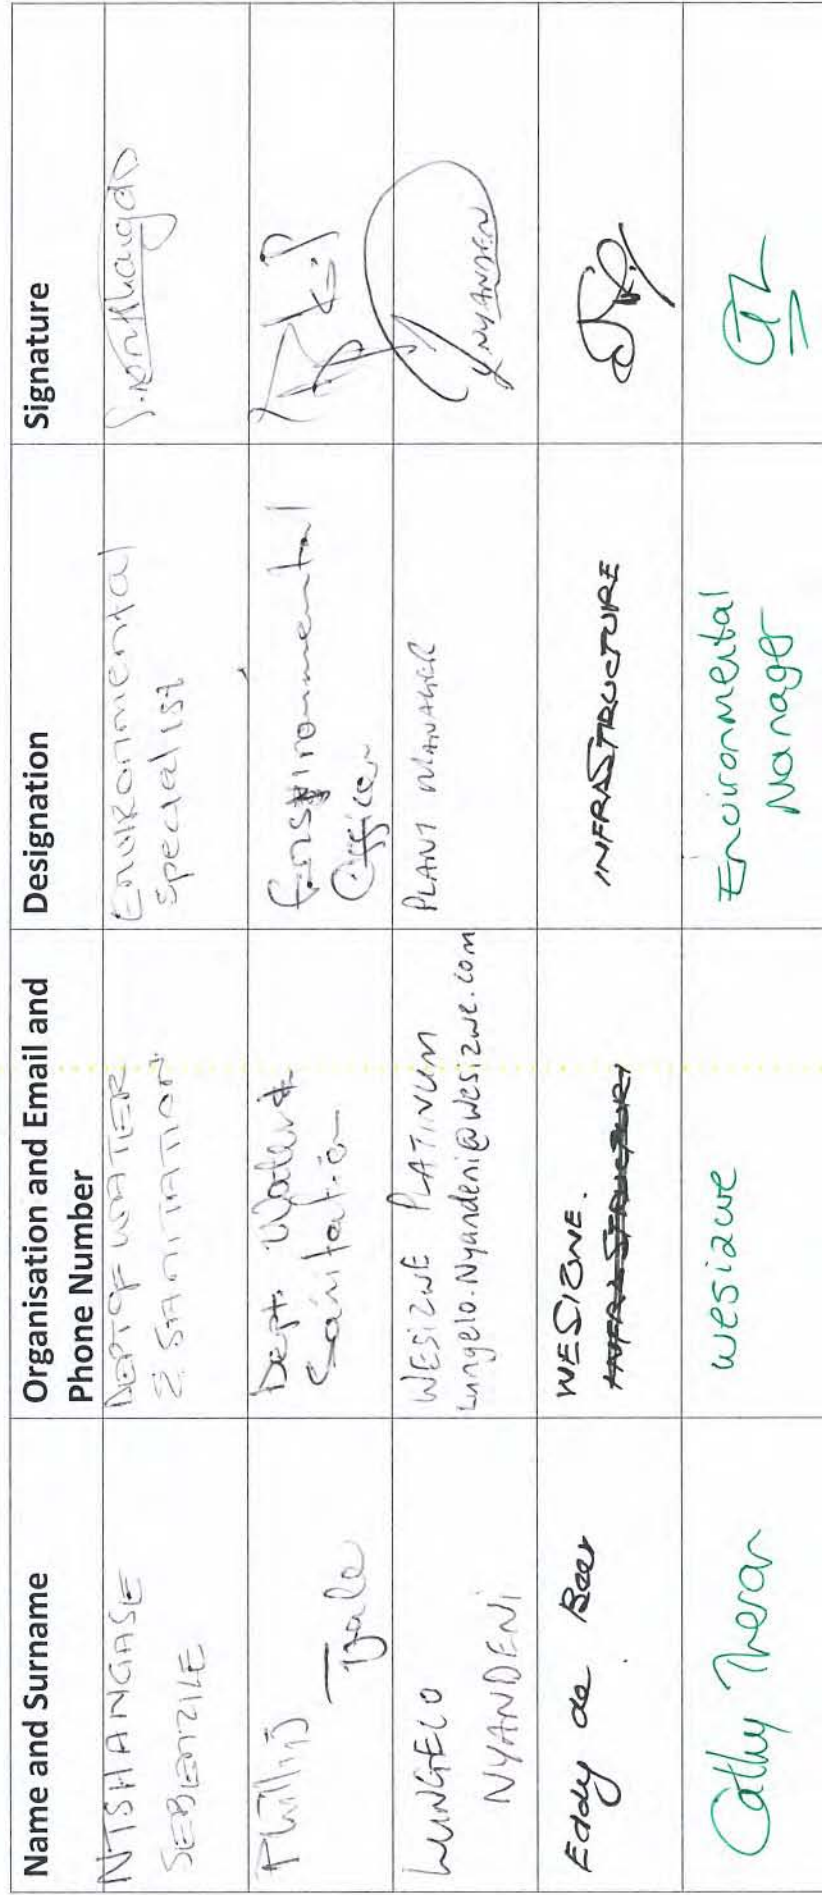 Name and Surname
Organisation and Email and
Phone Number
Designation
Signature
NTSHANGASE
SEBENZILE
DEPT OF WATER
& SANITATION
Environmental
Specialist
Phillip
Dept. Water &
Sanitation
Environmental
Officer
LUNGELO
NYANDENI
WESIZWE PLATINUM
Lungelo.Nyandeni@wesizwe.com
PLANT MANAGER
NYANDEN
Eddy de Beer
WESIZWE.
INFRASTRUCTURE
Cathy Theron
wesizwe
Environmental
Manager